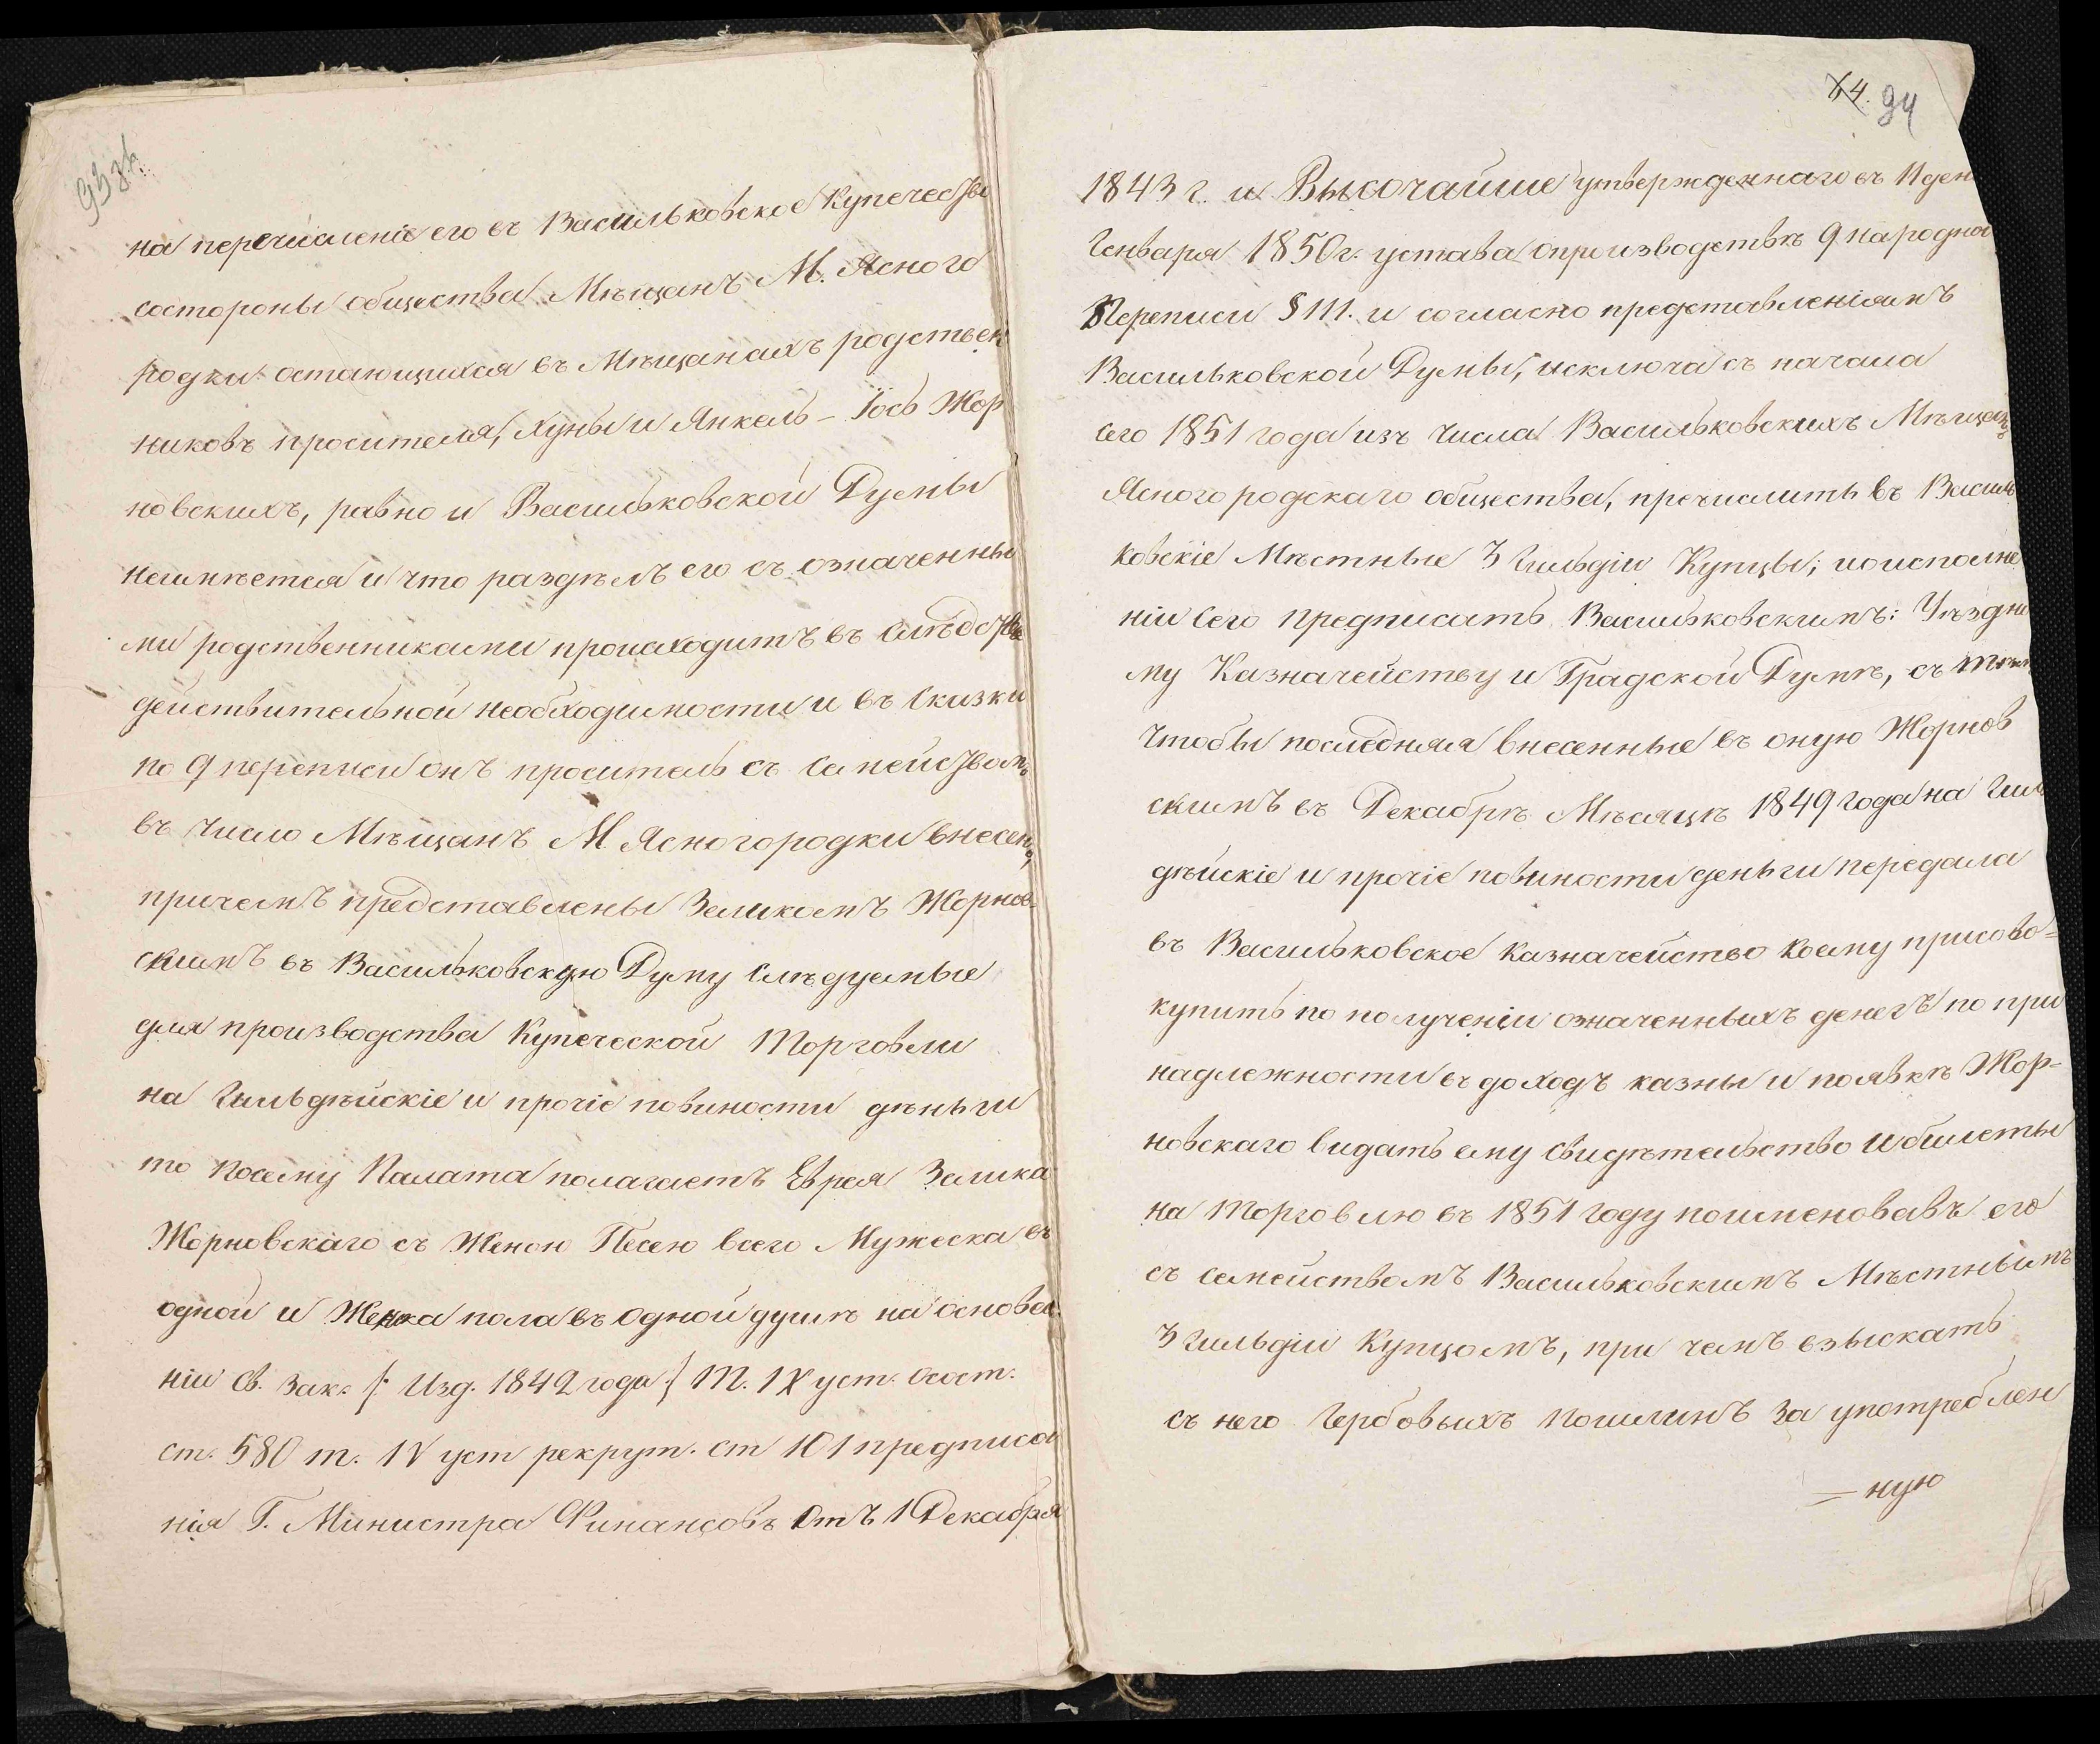 93 зв.
на перечисленіе его въ Васильковское Купечество
состороны общества Мѣщанъ М. Ясного
родки остающихся въ Мѣщанахъ родствен
никовъ просителя, Хуны и Янкель-Іось Жор
новскихъ, равно и Васильковской Думы
неимѣется и что раздѣлъ его съ означенны
ми родственниками происходитъ въ слѣдствіе
действительной необходимости и въ Сказки
по 9 переписи онъ проситель съ семействомъ
въ число Мѣщанъ М. Ясногородки внесенъ,
причемъ представлены Зеликомъ Жорнов-
скимъ въ Васильковскую Думу слѣдуемые
для производства Купеческой Торговли
на Гильдѣйскіе и прочіе повиности деньги
то посему Палата полагаетъ Еврея Зелика
Жорновскаго съ Женою Песею всего Мужеска въ
одной и Женска пола въ одной душѣ на основа
ніи Св. Зак. /: Изд. 1842 года :/ Т. IX уст. Осост.
ст. 580 т. IV уст рекрут. ст 101 предписа
нія Г. Министра Финансовъ Отъ 1 Декабря
84. 94
1843 г. и Высочайше утвержденнаго въ 11 ден
Генваря 1850 г. устава опроизводствѣ 9 народной
Переписи § 111. и согласно представленіямъ
Васильковской Думы, исключа съ начала
сего 1851 года изъ числа Васильковскихъ Мѣщанъ
Ясногородскаго общества, пречислить въ Василь
ковскіе Мѣстные 3 Гильдіи Купцы; поисполне
ніи сего предписать Васильковскимъ: Уѣздно
му Казначейству и Градской Думѣ, съ тѣмъ
чтобы последняя внесенные въ оную Жорнов
скимъ въ Декабрѣ Мѣсяцѣ 1849 года на Гиль
дѣйскіе и прочіе повиности деньги передала
въ Васильковское Казначейство коему присово=
купить по полученіи означенныхъ денегъ по при
надлежности въ доходъ казны и появкѣ Жор=
новскаго видать ему свидѣтельство и билеты
на Торговлю въ 1851 году поименовавъ его
съ семействомъ Васильковскимъ Мѣстнымъ
3 Гильдіи Купцомъ, при чемъ взыскать
съ него Гербовыхъ пошлинъ за употреблен
=ную